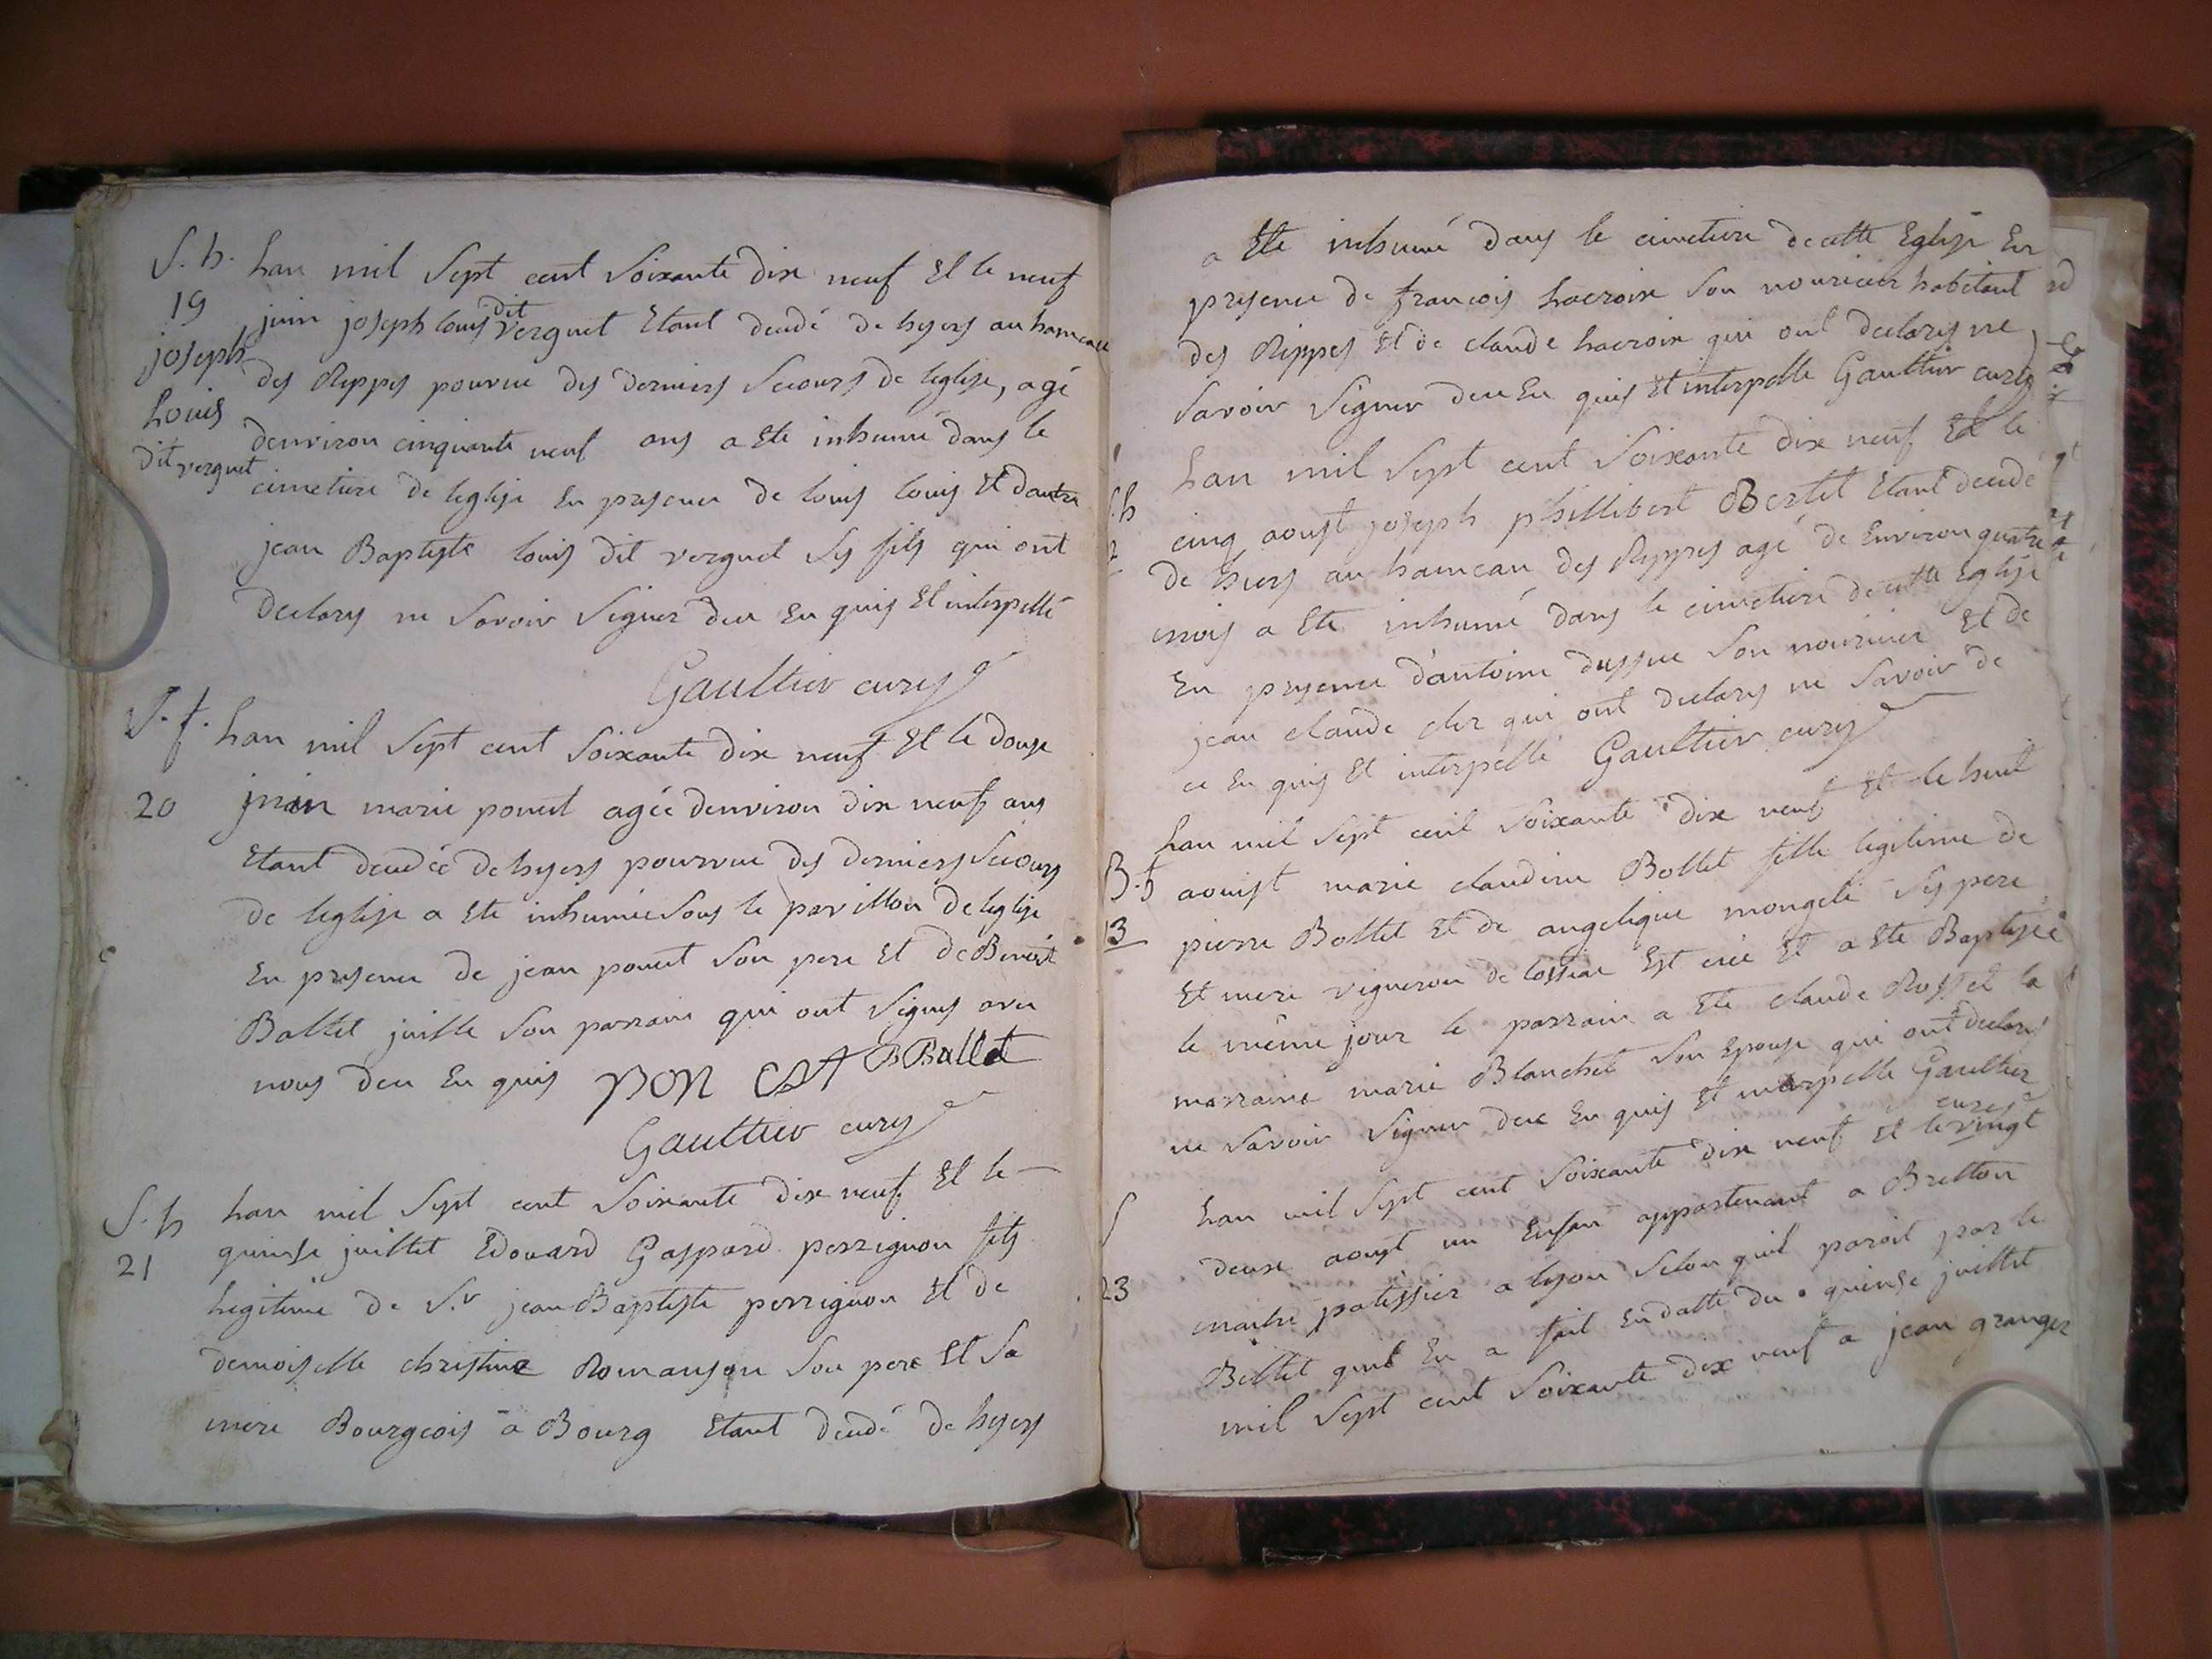 S. h. Lan mil sept cent soixante dix neuf Et le neuf
19 juin joseph louis dit verguet Etant decedé de hyers au hameau
joseph des Rippes pourvu des derniers secours de leglise, agé
Louis denviron cinquante neuf ans a Ete inhumé dans le
dit verguet cimetiere de leglise En presence de louis louis Et dautre
jean Baptiste louis dit verguet ses fils qui ont
declarés ne savoir signer deu En quis Et interpellé
Gaultier curé
S. f. Lan mil sept cent soixante dix neuf Et le douze
20 juin marie poncet agée denviron dix neuf ans
Etant decedée de hyers pourvue des derniers secours
de leglise a Ete inhumée sous le pavillon de leglise
En presence de jean poncet son pere Et de Benoit
Ballet son parrain qui ont signés avec
nous deu En quis PON CET B Ballet
Gaultier curé
S. h Lan mil sept cent soixante dix neuf Et le
21 quinse juillet Edouard Gaspard perrignon fils
legitime de S.r jean Baptiste perrignon Et de
demoiselle christine Romanson son pere Et sa
mere Bourgeois a Bourg Etant decedé de hyers
a Ete inhumé dans le cimetiere de cette Eglise En
presence de francois Lacroix son nouricier habitant
des Rippes Et de claude Lacroix qui ont declarés ne
savoir signer deu En quis Et interpelle Gaultier curé
Lan mil sept cent soixante dix neuf Et le
S.h cinq aoust joseph phillibert Bertet Etant decedé
2 de hiers au hameau des Rippes agé de Environ quatre
mois a Ete inhumé dans le cimetiere de cette Eglise
En presence d'antoine son nouricier Et de
jean claude cler qui ont declarés ne savoir de
ce En quis Et interpellé Gaultier curé
Lan mil sept cent soixante dix neuf Et le huit
B. f aouist marie claudine Bollet fille legitime de
13 pierre Bollet Et de angelique mongele ses pere
Et mere vigneron de Est née Et a Ete Baptisée
le même jour le parrain a Ete claude Rosset la
marraine marie Blanchet son Epouse qui ont declarés
ne savoir signer deu En quis Et interpelle Gaultier
curé
Lan mil sept cent soixante dix neuf Et le vingt
S deux aoust un Enfan appartenant a Bretton
23 maitre patissier a lyon selon quil paroit par le
Billet quil En a fait En datte du quinse juillet
mil sept cent soixante dix neuf a jean granger